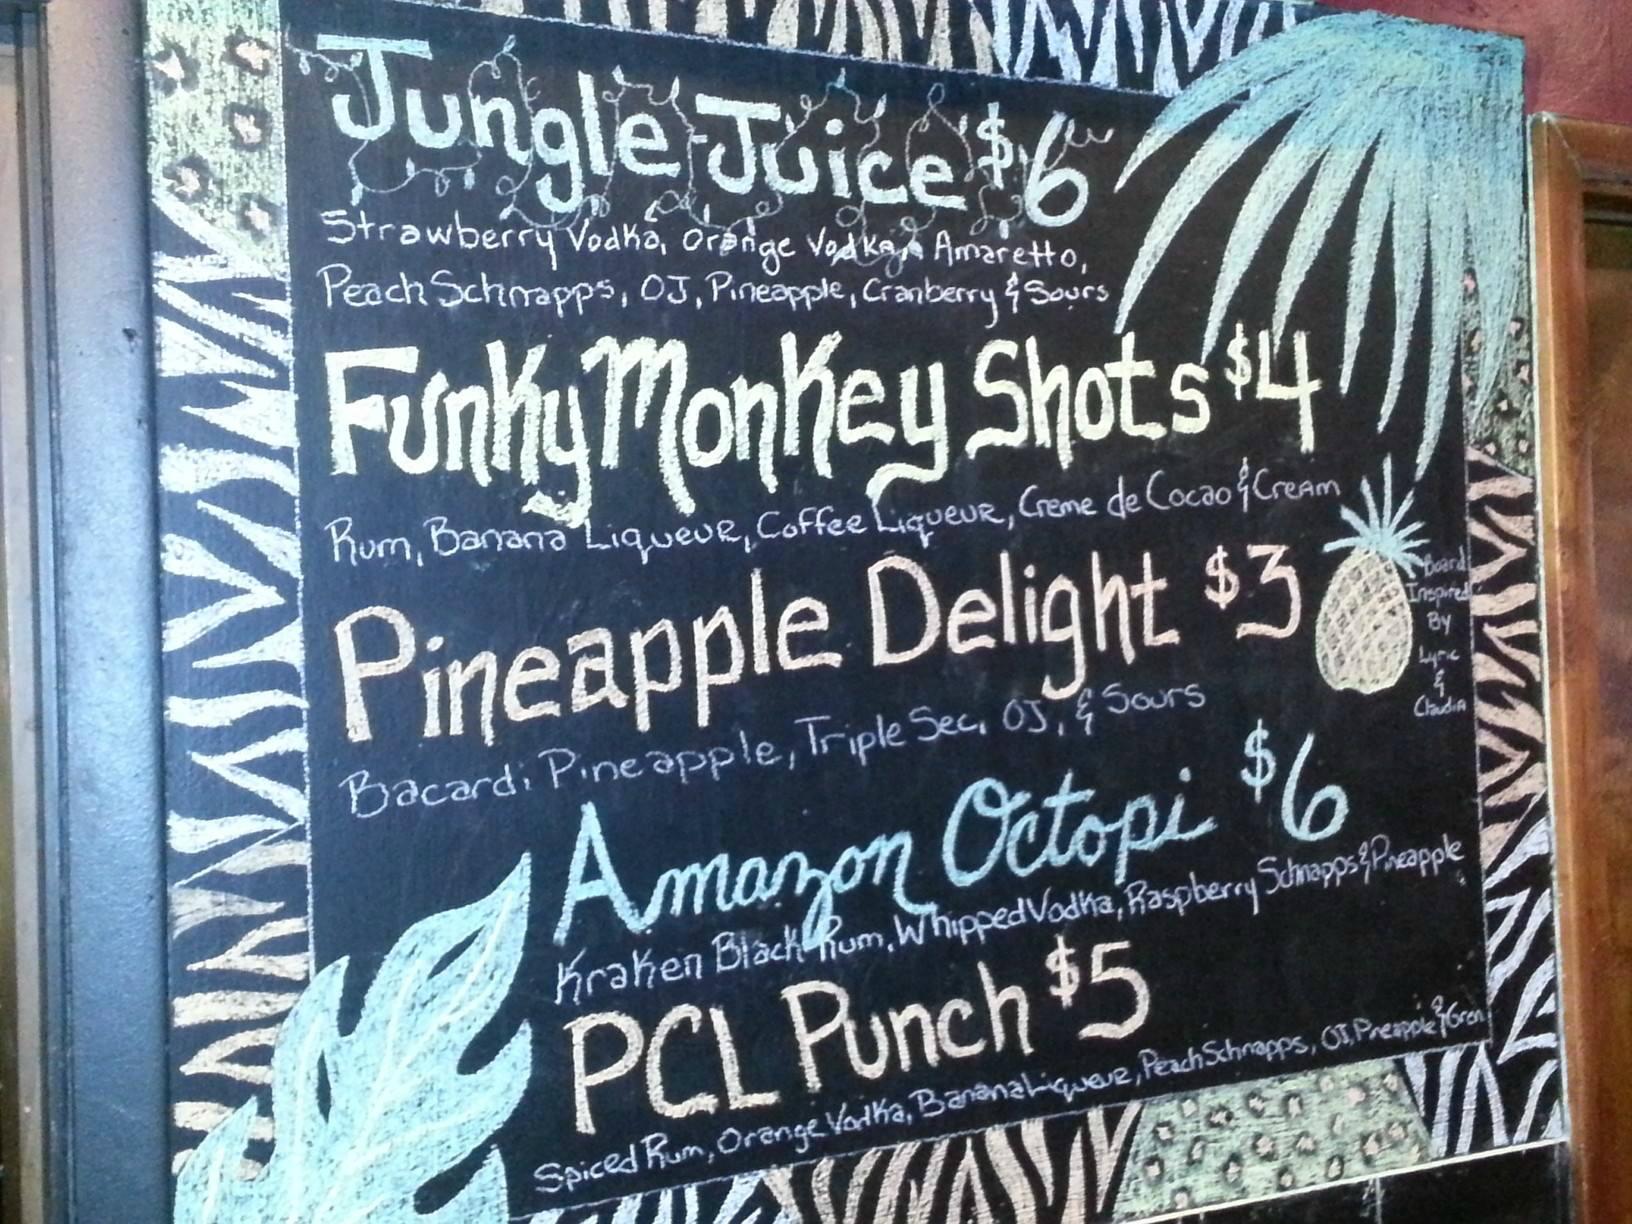 Jungle Juice $6
Strawberry Vodka, Orange Vodka, Amaretto,
Peach Schnapps, OJ, Pineapple, Cranberry & Sours
Funky Monkey Shots $4
Rum, Banana Liqueur, Coffee Liqueur, Creme de Cocao & Cream
Pineapple Delight $3
Bacardi Pineapple, Triple Sec, OJ, & Sours
Board
Inspired
By
Lyric
&
Claudia
Amazon Octopi $6
Kraken Black Rum, Whipped Vodka, Raspberry Schnapps & Pineapple
PCL Punch $5
Spiced Rum, Orange Vodka, Banana Liqueur, Peach Schnapps, OJ, Pineapple & Gren